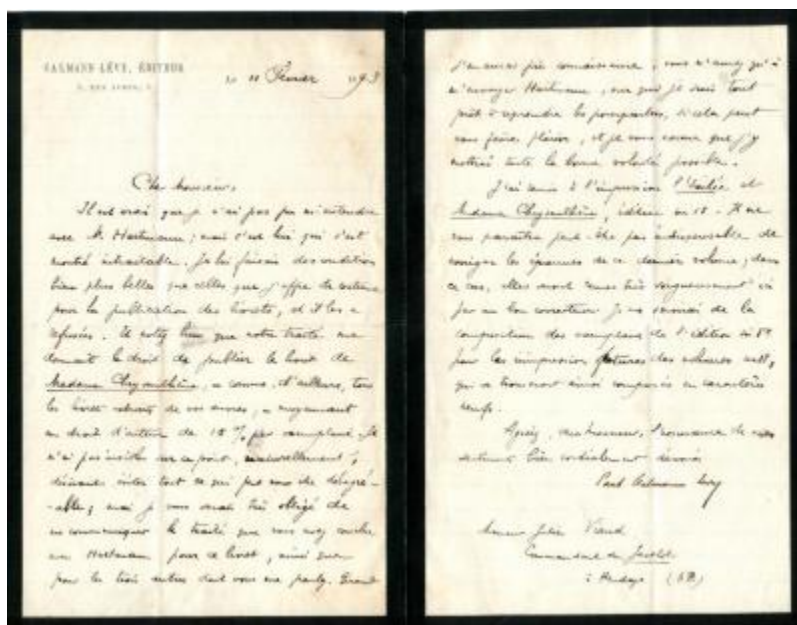 CALMANN LÉVY, ÉDITEUR
3, RUE AUBER, 3
le 11 Février 1893
Cher Monsieur,
Il est vrai que je n'ai pas pu m'entendre
avec M. Hartmann ; mais c'est lui qui s'est
montré intraitable. Je lui faisais des conditions
bien plus belles que celles que j'offre de coutume
pour la publication des livrets, et il les a
refusées. Et notez bien que notre traité me
donnait le droit de publier le livret de
Madame Chrysanthème, comme, d'ailleurs, tous
les livrets de vos œuvres, moyennant
un droit d'auteur de 15 % par exemplaire. Je
n'ai pas insisté sur ce point, naturellement,
désirant éviter tout ce qui peut vous être désagré-
-able ; mais je vous serais très obligé de
me communiquer le traité que vous avez
avec Hartmann pour ce livret, ainsi que
pour les trois autres dont vous me parlez. Quand
j'en aurai pris connaissance, vous n'aurez qu'à
m'envoyer Hartmann, car je suis tout
prêt à reprendre les pourparlers, si cela peut
vous faire plaisir, et je vous assure que j'y
mettrai toute la bonne volonté possible.
J'ai à l'impression l'Exilée et
Madame Chrysanthème, édition in 18. Il ne
vous paraîtra peut-être pas indispensable de
corriger les épreuves de ce dernier volume ; dans
ce cas, elles seront très soigneusement
par un bon correcteur. Je me servirai de la
composition des exemplaires de l'édition in 8º
pour les impressions futures des
qui se trouveront ainsi composés en caractères
neufs.
Agréez, cher Monsieur, l'assurance de mes
sentiments bien cordialement dévoués
Paul Calmann Lévy
Monsieur Julien Viaud
Commandant du Javelot
à Hendaye (B.P.)